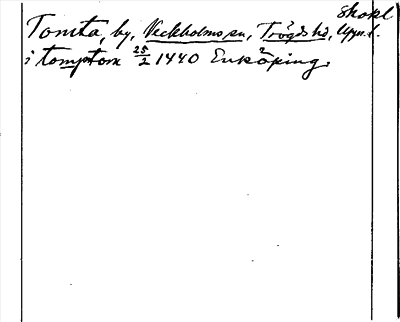 Skokl
Tomta, by, Veckholms sn, Trögds hd, Upps. l.
i tomptom 25/2 1440 Enköping.